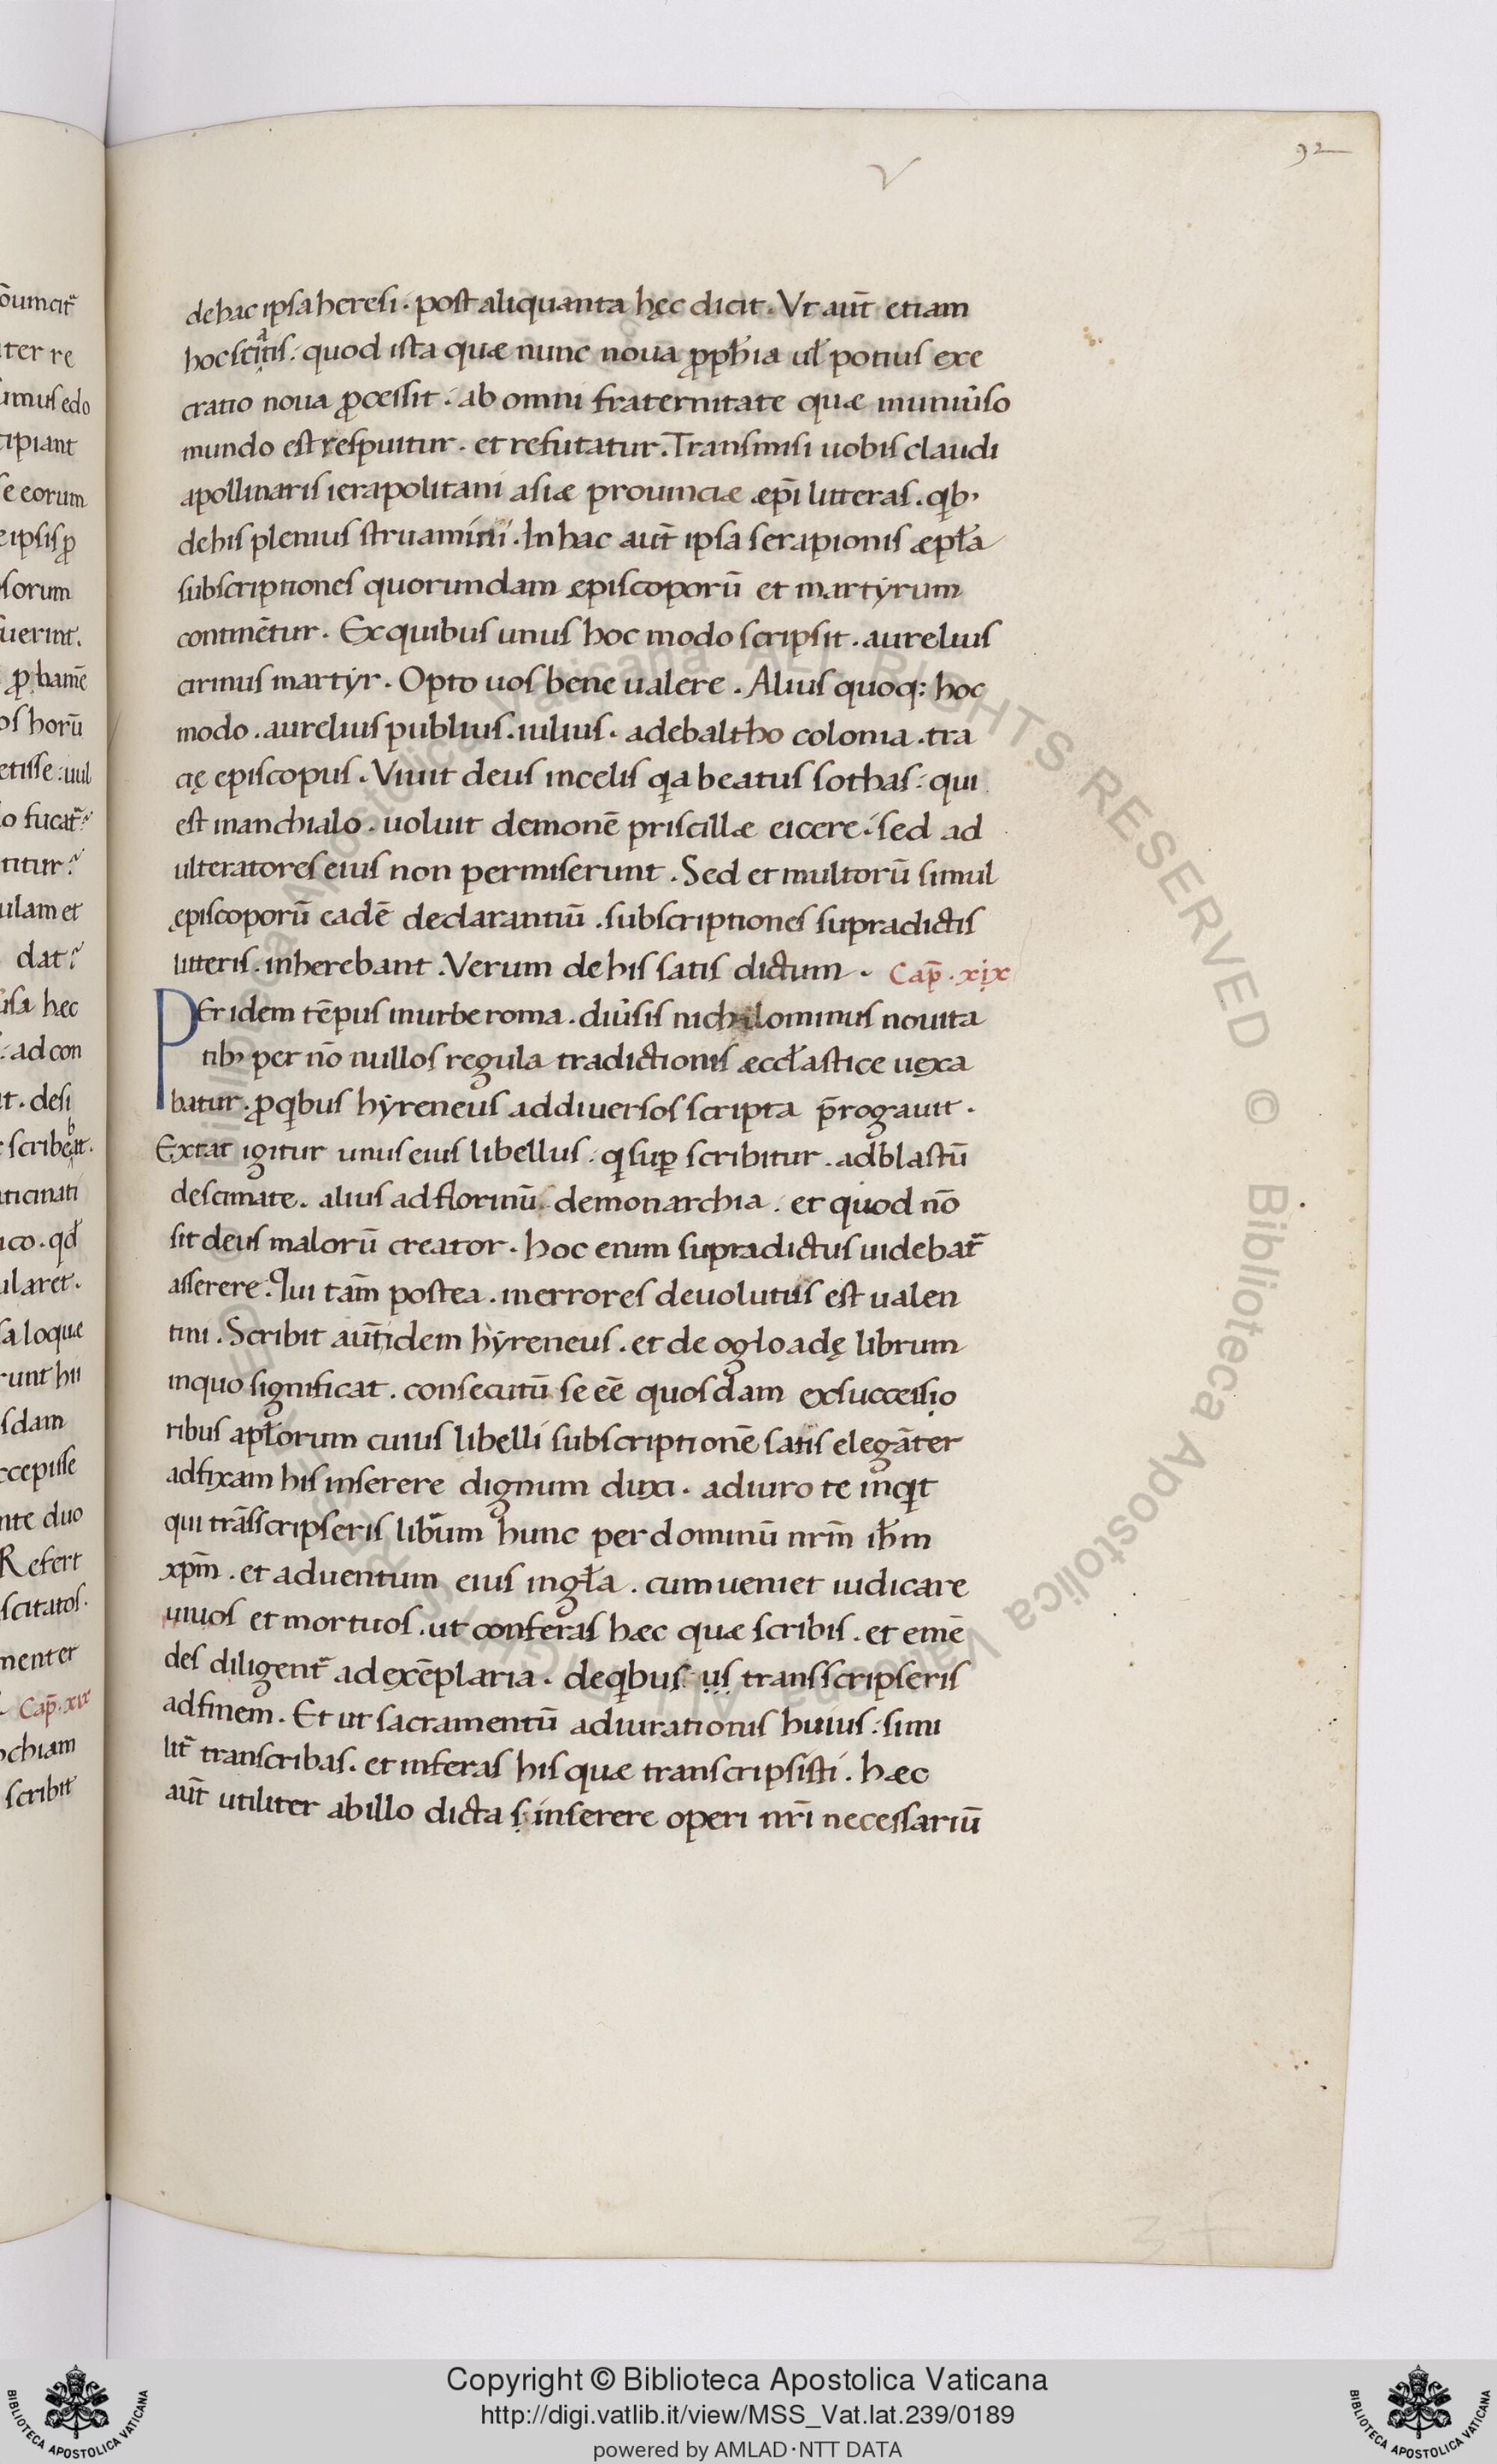 92
de hac ipsa heresi. post aliquanta hęc dicit. Vt aut̄ etiam
hoc sciatis. quod ista quæ nunc noua ꝓph̄ia ul̄ potius exe
cratio noua ꝓcessit. ab omni fraternitate quæ in uniu̓so
mundo est respuitur. et refutatur. Transmisi uobis claudi
apollinaris ierapolitani asiæ prouinciæ æpī litteras. qib;
de his plenius struamini. In hac aut̄ ipsa serapionis æpl̄a
subscriptiones quorundam episcoporū et martyrum
continētur. Ex quibus unus hoc modo scripsit. aurelius
cirinus martyr. Opto uos bene ualere. Alius quoq; hoc
modo. aurelius publius. iulius. adebaltho colonia. tra
cię episcopus. Viuit deus in celis qia beatus sothas. qui
est in anchialo. uoluit demonē priscillæ eicere. sed ad
ulteratores eius non permiserunt. Sed et multorū simul
episcoporū eadē declarantiū. subscriptiones supradictis
litteris. inherebant. Verum de his satis dictum. Cap̄. xix
PEr idem tēpus in urbe roma. diu̓sis nichilominus nouita
tib; per nō nullos regula tradictionis æccl̄astice uexa
batur. ꝓ qibus hyreneus ad diuersos scripta p̄rogauit.
Extat igitur unus eius libellus. qi suꝑ scribitur. ad blastū
de scimate. alius ad florinū. de monarchia. et quod nō
sit deus malorū creator. hoc enim supradictus uidebat̄
asserere. Qui tam̄ postea. in errores deuolutus est ualen
tini. Scribit aut̄ idem hyreneus. et de ogloadę librum
in quo significat. consecutū se eē quosdam ex successio
ribus apl̄orum cuius libelli subscriptionē satis elegāter
adfixam his inserere dignum duxi. adiuro te inqit
qui trāsscripseris librum hunc per dominū nrm̄ ih̄m
xpm̄. et aduentum eius in gl̄a. cum ueniet iudicare
uiuos et mortuos. ut conferas hæc quæ scribis. et emē
des diligent̄ ad exēplaria. de qibus us transscripseris
ad finem. Et ut sacramentū adiurationis huius. simi
lit̄ transcribas. et inferas his quæ transcripsisti. hæc
aut̄ utiliter ab illo dicta s. inserere operi nrī necessariū
Copyright © Biblioteca Apostolica Vaticana
http://digi.vatlib.it/view/MSS_Vat.lat.239/0189
powered by AMLAD·NTT DATA
BIBLIOTECA APOSTOLICA VATICANA
BIBLIOTECA APOSTOLICA VATICANA